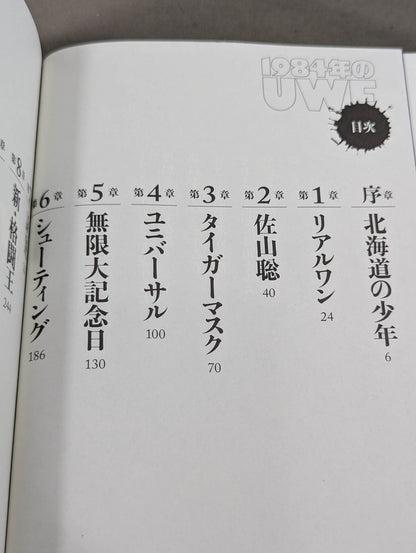 1984年の
UWF
目次
序章 北海道の少年 6
第1章 リアルワン 24
第2章 佐山聡 40
第3章 タイガーマスク 70
第4章 ユニバーサル 100
第5章 無限大記念日 130
6章 シューティング 186
第8章 新・格闘王 244